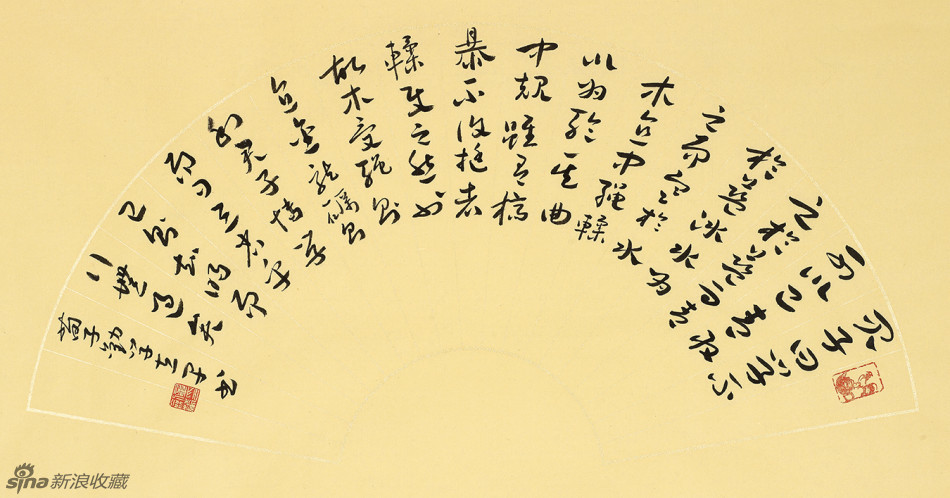 君子曰学不
可以已青取
之於蓝而青
於蓝冰水为
之而寒於水
木直中绳輮
以为轮其曲
中規雖有槁
暴不復挺者
輮使之然也
故木受绳则
直金就礪則
利君子博学
而日参省乎
己則知明而
行無過矣
荀子勸学
sina新浪收藏